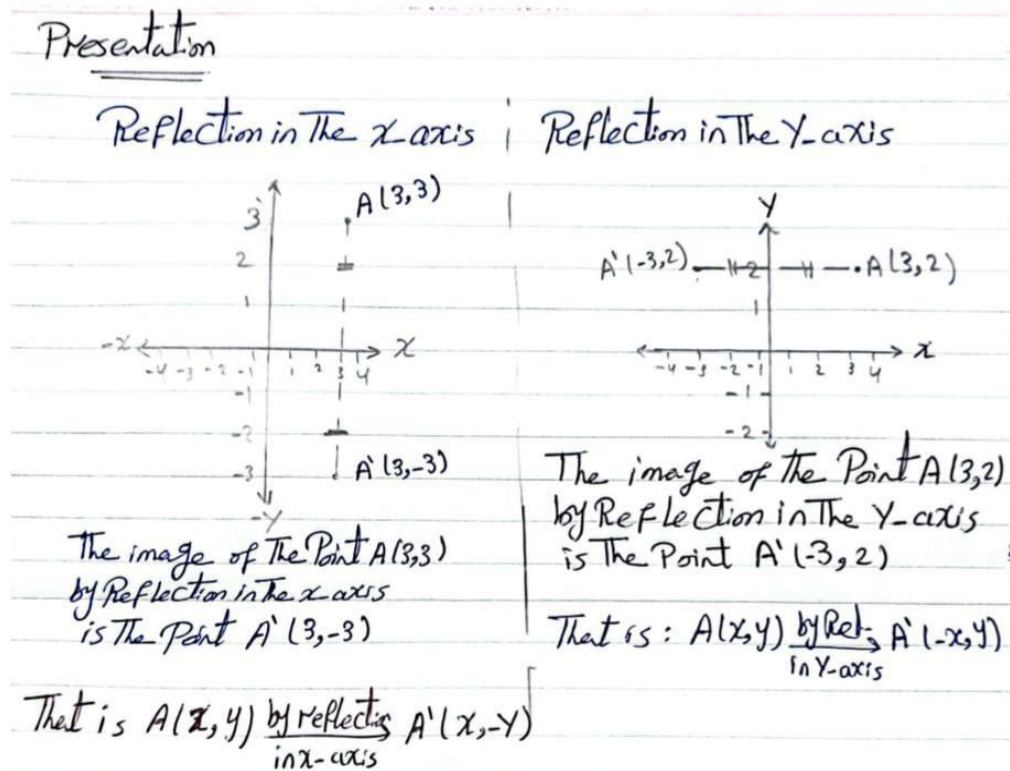 Presentation
Reflection in The x-axis
A(3,3)
3
2
1
-x
x
-4 -3 -2 -1 1 2 3 4
-1
-2
-3
A'(3,-3)
-Y
The image of The Point A(3,3)
by Reflection in The x-axis
is The Point A'(3,-3)
That is A(x,y) by reflection A'(x,-Y)
in x-axis
Reflection in The Y-axis
Y
A'(-3,2)
2
A(3,2)
1
x
-4 -3 -2 -1 1 2 3 4
-1
-2
The image of the Point A(3,2)
by Reflection in The Y-axis
is The Point A'(-3,2)
That is: A(x,y) by Ref. A'(-x,y)
in Y-axis